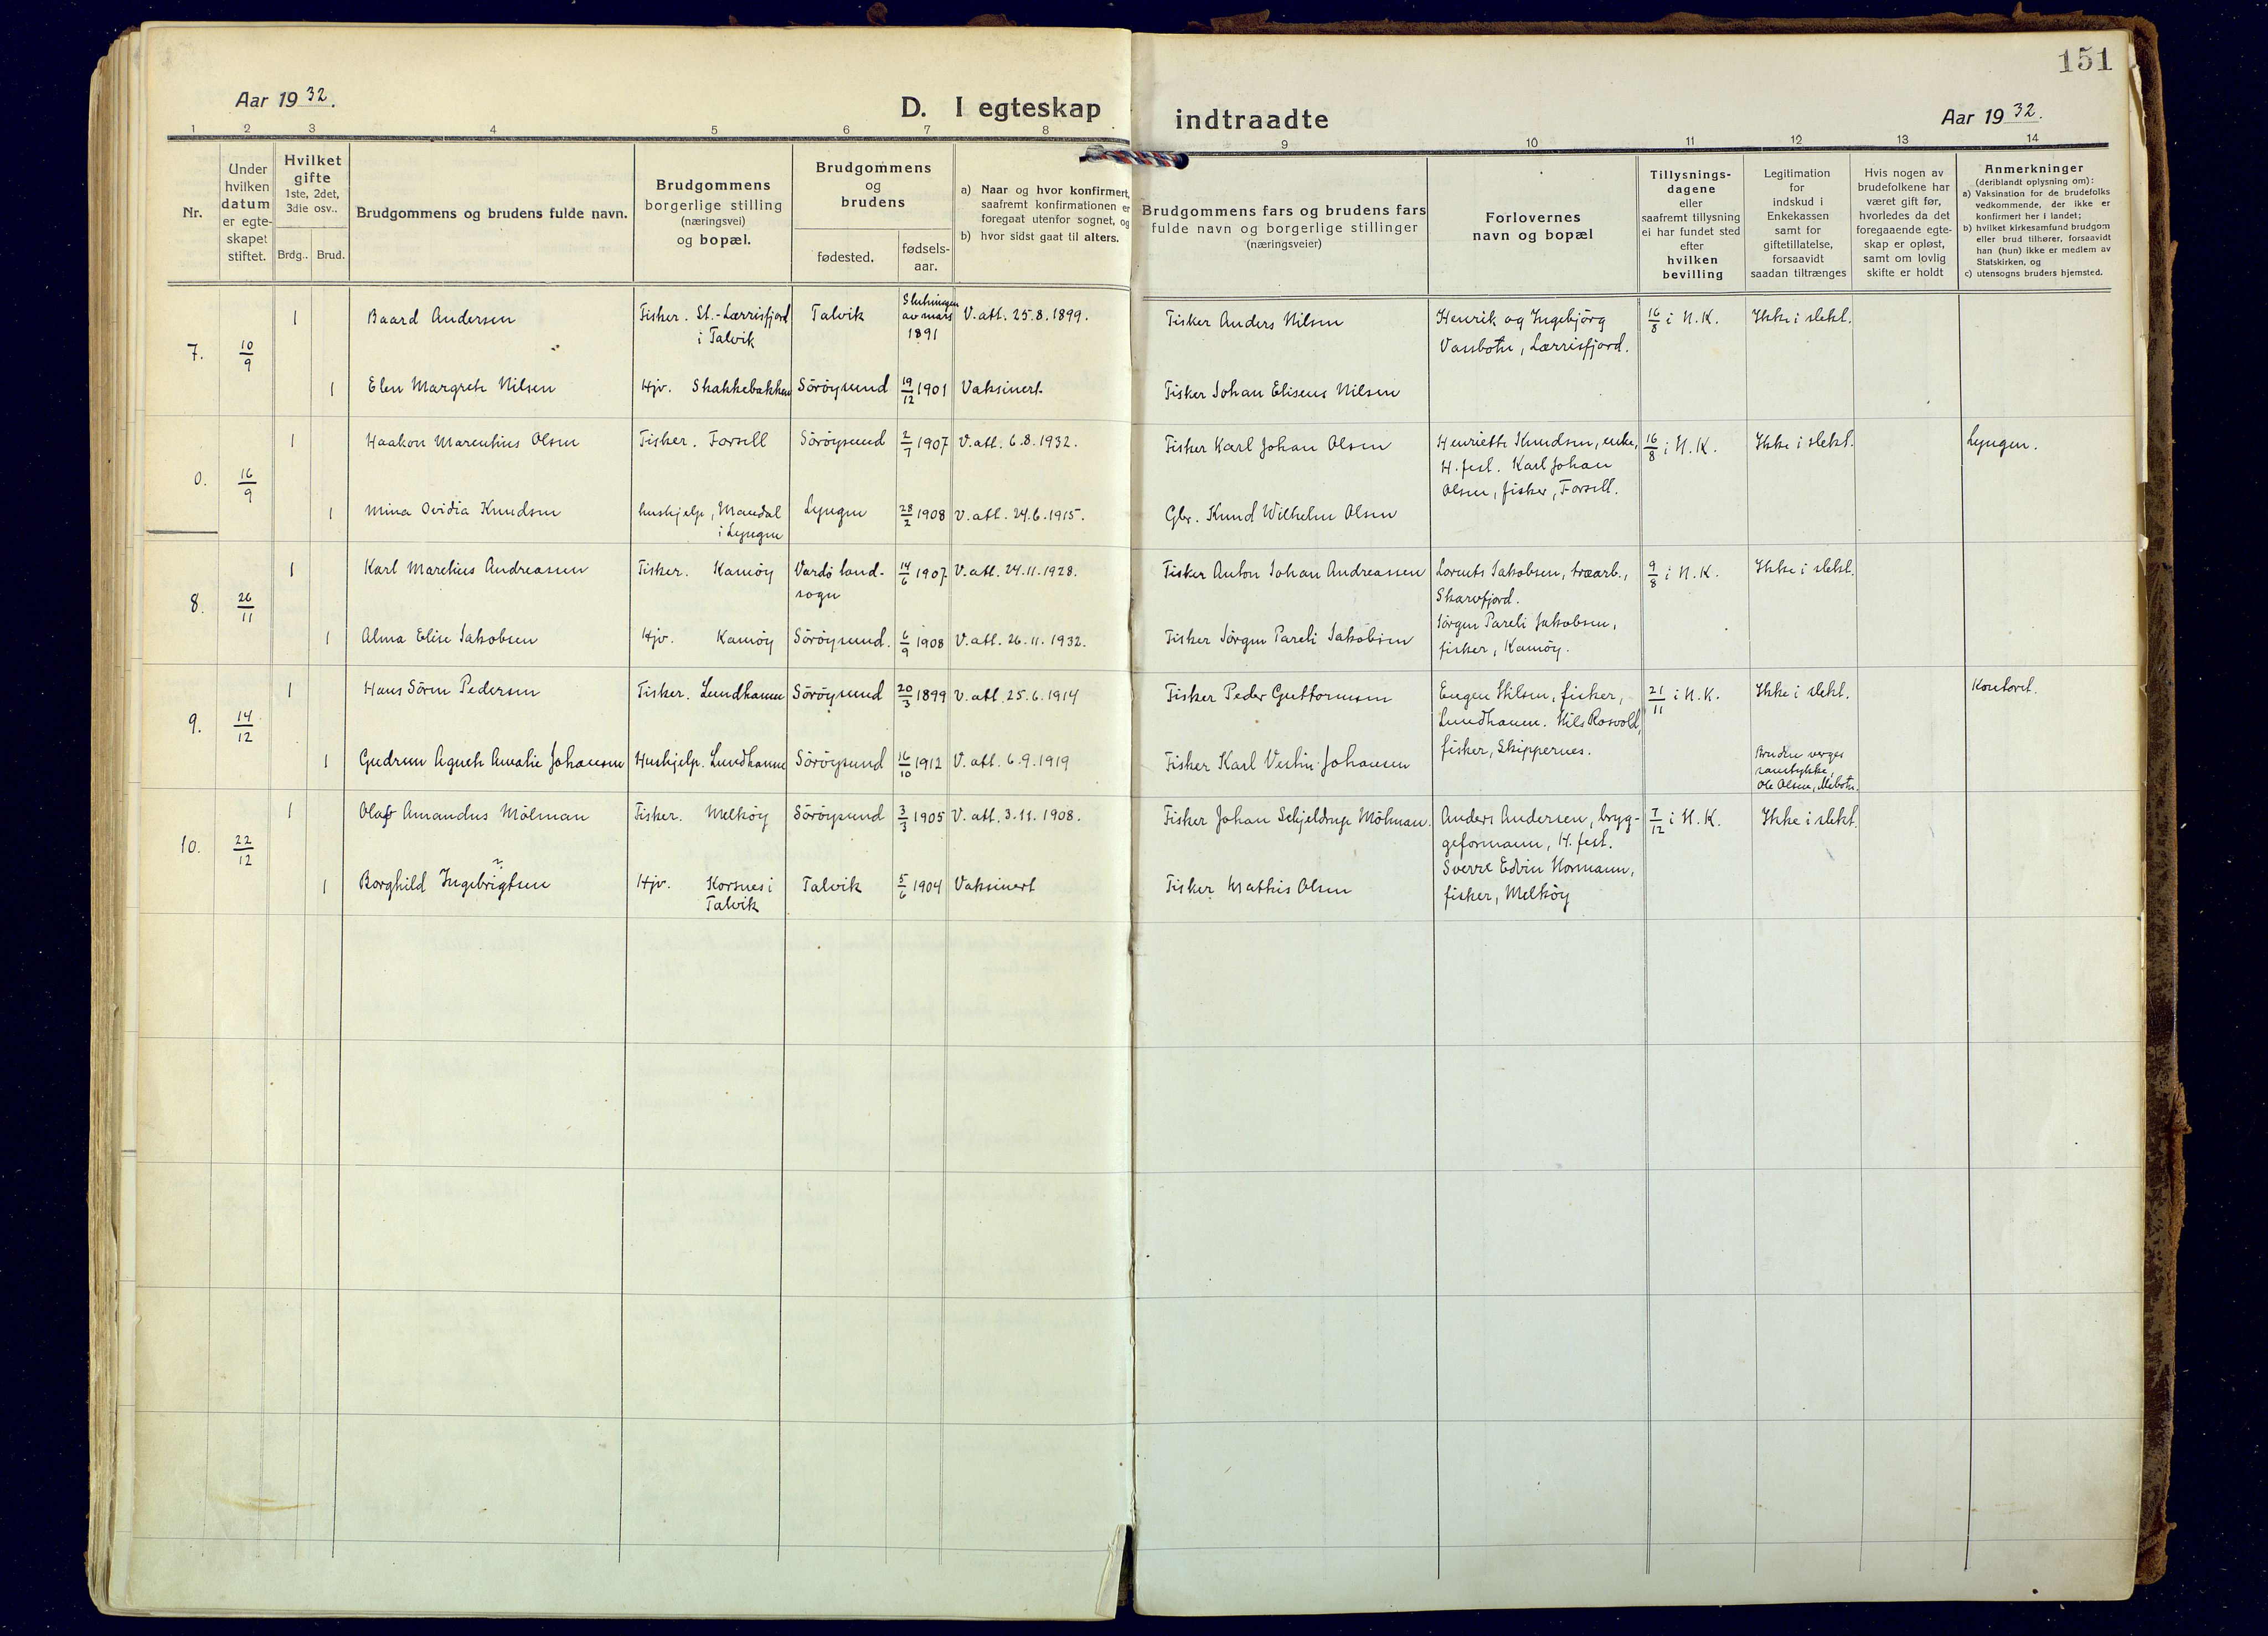 151
Aar 1932.
D. I egteskap indtraadte
Aar 1932.
1 2 3 4 5 6 7 8 9 10 11 12 13 14
Nr.
Under
hvilken
datum
er egte-
skapet
stiftet.
Hvilket
gifte
1ste, 2det,
3die osv..
Brdg.. Brud.
Brudgommens og brudens fulde navn.
Brudgommens
borgerlige stilling
(næringsvei)
og bopæl.
Brudgommens
og
brudens
fødested.
fødsels-
aar.
a) Naar og hvor konfirmert,
saafremt konfirmationen er
foregaat utenfor sognet, og
b) hvor sidst gaat til alters.
Brudgommens fars og brudens fars
fulde navn og borgerlige stillinger
(næringsveier)
Forlovernes
navn og bopæl
Tillysnings-
dagene
eller
saafremt tillysning
ei har fundet sted
efter
hvilken
bevilling
Legitimation
for
indskud i
Enkekassen
samt for
giftetillatelse,
forsaavidt
saadan tiltrænges
Hvis nogen av
brudefolkene har
været gift før,
hvorledes da det
foregaaende egte-
skap er opløst,
samt om lovlig
skifte er holdt
Anmerkninger
(deriblandt oplysning om):
a) Vaksination for de brudefolks
vedkommende, der ikke er
konfirmert her i landet;
b) hvilket kirkesamfund brudgom
eller brud tilhører, forsaavidt
han (hun) ikke er medlem av
Statskirken, og
c) utensogns bruders hjemsted.
7. 10/9
1 Baard Andersen
Fisker. St.-Lærrisfjord
i Talvik
Talvik
Slutningen
av mars
1891
V. att. 25.8.1899.
Fisker Anders Nilsen
Henrik og Ingebjörg
Vassbotn, Lærrisfjord.
16/8 i H.K.
Ikke i slekt.
1 Elen Margrete Nilsen
Hjv. Skakkebakken
Söröysund
19/12 1901
Vaksinert.
Fisker Johan Eliseus Nilsen
0. 16/9
1 Haakon Marentius Olsen
Fisker. Forsöl
Söröysund
2/7 1907
V. att. 6.8.1932.
Fisker Karl Johan Olsen
Henriette Knudsen, enke,
H.fest. Karl Johan
Olsen, fisker, Forsöl.
16/8 i H.K.
Ikke i slekt.
Lyngen.
1 Mina Ovidia Knudsen
hushjelp, Mandal
i Lyngen
Lyngen
28/2 1908
V. att. 24.6.1915.
Gbr. Knud Wilhelm Olsen
8. 26/11
1 Karl Marelius Andreassen
Fisker. Kamöy
Vardö land-
sogn
14/6 1907
V. att. 24.11.1928.
Fisker Anton Johan Andreassen
Lorents Jakobsen, træarb.,
Skarvfjord.
Jörgen Pareli Jakobsen,
fisker, Kamöy.
9/8 i H.K.
Ikke i slekt.
1 Alma Elise Jakobsen
Hjv. Kamöy
Söröysund.
6/9 1908
V. att. 26.11.1932.
Fisker Jörgen Pareli Jakobsen
9. 14/12
1 Hans Sören Pedersen
Fisker. Lundhamn
Söröysund
20/3 1899
V. att. 25.6.1914
Fisker Peder Guttormsen
Eugen Nilsen, fisker,
Lundhamn. Nils Rosvold,
fisker, Skippernes.
21/11 i H.K.
Ikke i slekt.
Kontoret.
1 Gudrun Agnete Amalie Johansen
Hushjelp. Lundhamn
Söröysund
16/10 1912
V. att. 6.9.1919
Fisker Karl Vestin Johansen
Brudens verges
samtykke,
Ole Olsen, Mebotn.
10. 22/12
1 Olaf Amandus Mölman
Fisker. Melköy
Söröysund
3/3 1905
V. att. 3.11.1908.
Fisker Johan Schjeldrup Mölman.
Anders Andersen, bryg-
geformann, H.fest.
Sverre Edvin Normann,
fisker, Melköy
7/12 i H.K.
Ikke i slekt.
1 Borghild Ingebrigtsen
?
Hjv. Korsnes i
Talvik
Talvik
5/6 1904
Vaksinert
Fisker Mathis Olsen